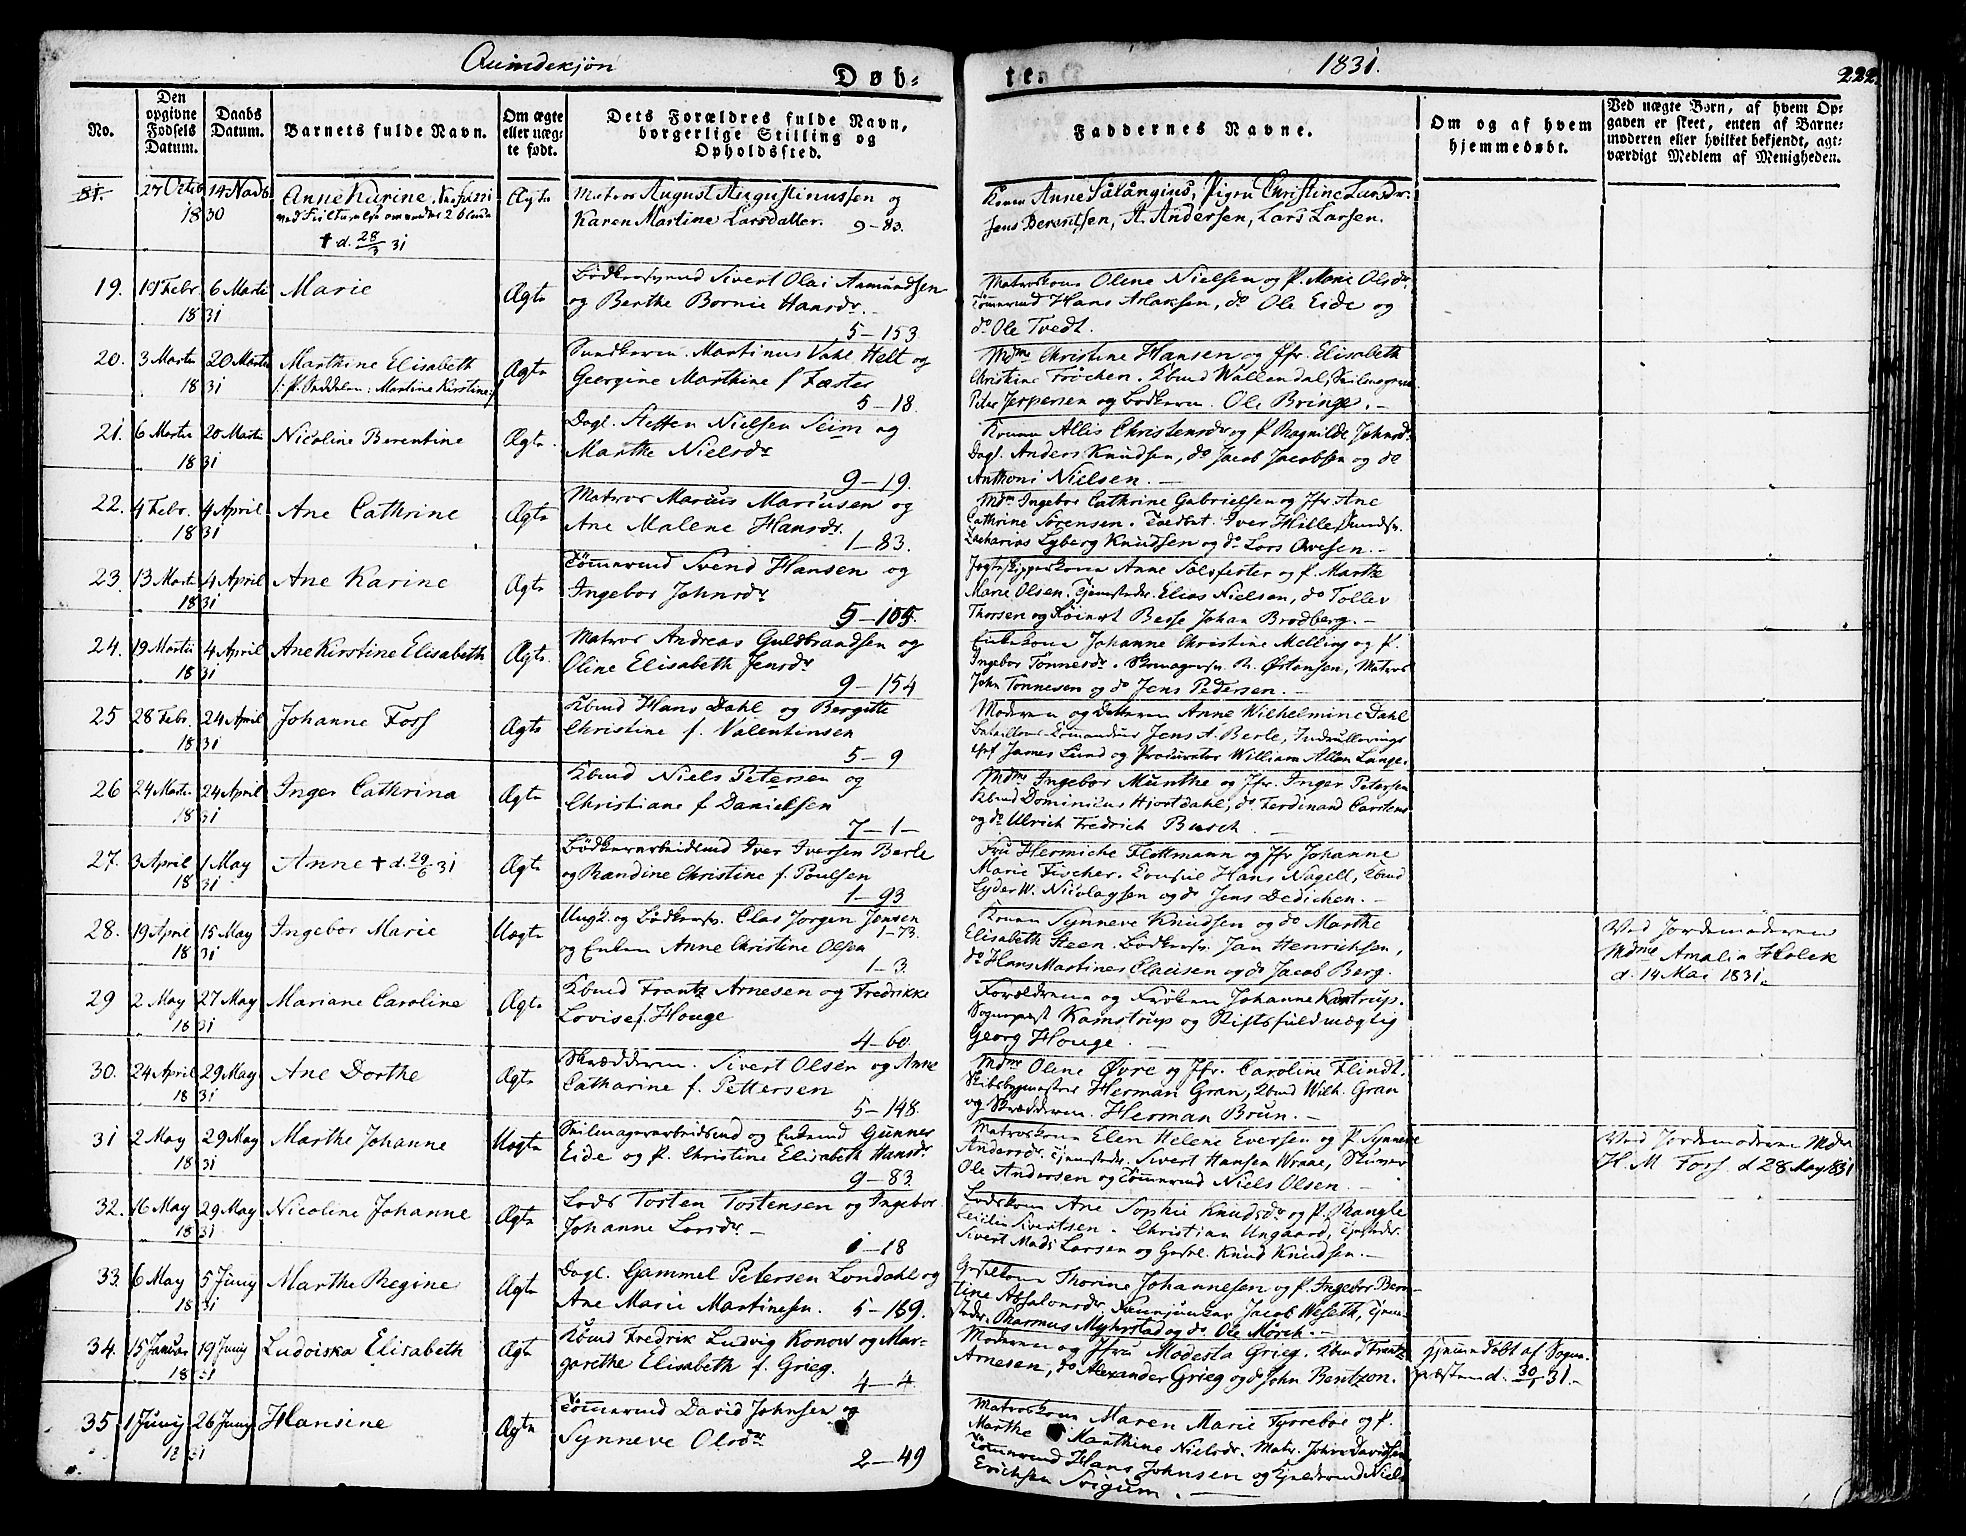 Quindekjøn
Døb=
te.
1831.
222.
No.
Den opgivne Fødsels Datum.
Daabs Datum.
Barnets fulde Navn.
Om ægte eller uægte født.
Dets Forældres fulde Navn, borgerlige Stilling og Opholdssted.
Faddernes Navne.
Om og af hvem hjemmedøbt.
Ved uægte Børn, af hvem Opgaven er skeet, enten af Barnemoderen eller hvilket bekjendt, agtværdigt Medlem af Menigheden.
81. 27 Octb 14 Novb 1830 Anne Karine.
† d. 28/3 31
Ægte
Matros August Augustinussen og
Karen Martine Larsdatter. 9-83.
Konen Anne Christine
Jens Berentsen, A. Andersen, Lars Larsen.
19. 19 Febr. 6 Martii 1831 Marie
Ægte
Sivert Olai Aamundsen
og Berthe Bornie Hansdr.
5-153
Matroskone Oline Nielsen og P. Marie Olsdr.
Tömmermd Hans Aslaksen, do Ole Eide og
do Ole Tvedt.
20. 3 Martii 20 Martii 1831 Marthine Elisabeth
Martine Kirstine
Ægte
Martinus Vahl Helt og
Geergine Marthine f. Fæster
5-18.
Mdme Christine Hansen og Jfr. Elisabeth
Christine Fröchen. Kbmd Wallendal,
Peter Jespersen og Ole Bringe.-
21. 6 Martii 20 Martii 1831 Nicoline Berentine
Ægte
Dagl. Steffen Nielsen Seim og
Marthe Nielsdr
9-19.
Konen Allis Christensdr og P. Ragnilde Johnsd.
Dagl. Anders Knudsen, do Jacob Jacobsen og do
Anthoni Nielsen.-
22. 4 Febr. 4 April 1831 Ane Cathrine
Ægte
Matros Marius Mariusen og
Ane Malene Hansdr.
1-83.
Mdm Ingebor Cathrine Gabrielsen og Jfr. Ane
Cathrine Sörensen. Iver Hille,
Zacharias Lyberg Knudsen og do Lars Ovesen.-
23. 13 Martii 4 April 1831 Ane Karine
Ægte
Tömmermd Svend Hansen og
Ingebor Johnsdr
5-105.
Anne Solsfester og P. Marthe
Marie Olsen. Elias Nielsen, do Tollev
Thorsen og Johan Brodberg.-
24. 19 Martii 4 April 1831 Ane Kirstine Elisabeth
Ægte.
Matros Andreas Guldbrandsen og
Oline Elisabeth Jensdr
9-154
Enkekonen Johanne Christine Melling og P.
Ingebor Tonnesdr. Østansen, Matros
John Tonnesen og do Jens Pedersen.-
25 28 Febr. 24 April 1831 Johanne Foss
Ægte
Kbmd Hans Dahl og Bergitte
Christine f. Valentinsen
5-9
Moderen og Datteren Anne Wilhelmine Dahl
Jens A. Berle, Indrullerings
James Lund og Procurator William Allan Lange.
26 24 Martii 24 April 1831 Inger Cathrina
Ægte
Kbmd Niels Petersen og
Christiane f. Danielsen
7-1-
Mdme Ingebor Munthe og Jfr. Inger Petersen
Kbmd Dominicus Hjortdahl, do Ferdinand Carstens
og do Ulrich Fredrich Busch.-
27. 3 April 1 May 1831 Anne † d. 29/6 31
Ægte
Bödkerarbeidsmd Iver Iversen Berle
og Randine Christine f. Poulsen
1-93
Fru Hermiche Flottmann og Jfr. Johanne
Marie Fischer. Consul Hans Nagell, Kbmd
Lyder W. Nicolaysen og do Jens Dedichen.-
28. 19 April 15 May 1831 Ingebor Marie
Uægte
Ungk. og Bödkersv. Clas Jorgen Jensen
1-73.
og Enken Anne Christine Olsen
1-3.
Konen Synneve Knudsen og do Marthe
Elisabeth Steen. Bödkersv. Jan Henrichsen,
do Hans Martines Clausen og do Jacob Berg.
Ved Jordemoderen
Mdme Amalia Holck
d. 14 Mai 1831.
29 2 May 27 May 1831 Mariane Caroline
Ægte
Kbmd Frantz Arnesen og Fredrikke
Lovise f. Houge
4-60.
Forældrene og Fröken Johanne Kamstrup.
Sognepræst Kamstrup og Stiftsfuldmægtig
Georg Houge.-
30. 24 April 29 May 1831 Ane Dorthe
Ægte
Skrædderen. Sivert Olsen og Anne
Catharine f. Pettersen
5-148.
Mdme Olene Øvre og Jfr. Caroline Flindt.
Skibsbygmester Herman Gran, Kbmd Wilh. Gran
og Skrædderen. Herman Brun.-
31 2 May 29 May 1831 Marthe Johanne
Uægte
Seilmagerarbeidsmd og Enkemd Gunner
Eide og P. Christine Elisabeth Hansdr
9-83.
Matroskone Elen Helene Eversen og P. Synneve
Andersdr. Sivert Hansen Wraae,
Ole Andersen og Tömmermd Niels Olsen.-
Ved Jordemoderen Mdm
H. M Foss d 28 May 1831
32. 16 May 29 May 1831 Nicoline Johanne
Ægte
Lods Tosten Tostensen og Ingebor
Johanne Larsdr.-
1-18
Lodskonen Ane Sophie Knudsdr og P. Rangle
Cecilie Sivertsen. Christian Ungaard,
Sivert Mads Larsen og Knud Knudsen.-
33. 6 May 5 Junij 1831 Marthe Regine
Ægte
Dagl. Gammel Petersen Londahl og
Ane Marie Martinesen. 5-169.
Thorine Johannesen og P. Ingebor Beren-
tine Absalonsdr. Jacob Weseth,
Rasmus Myhrstad og do Ole Mörch.-
34. 15 Januar 19 Junij 1831 Ludviska Elisabeth
Ægte
Kbmd Fredrik Ludvig Konow og Mar-
garethe Elisabeth f. Grieg.
4-4.
Moderen og Modesta Grieg. Kbmd Frantz
Arnesen, do Alexander Grieg og do John Bentzon.
Hjemmedöbt af Sogne-
præsten d. 30/1 31.-
35. 1 Junij 26 Junij 1831 Hansine
Ægte
Tömmermd David Johnsen og
Synneve Olsdr.
2-49
Matroskonen Maren Marie Fyrreböe og P.
Marthe Marthine Nielsdr. Matr. Johs Davidsen
Tömmermd Hans Johnsen og Niels
Erichsen Svigum.-